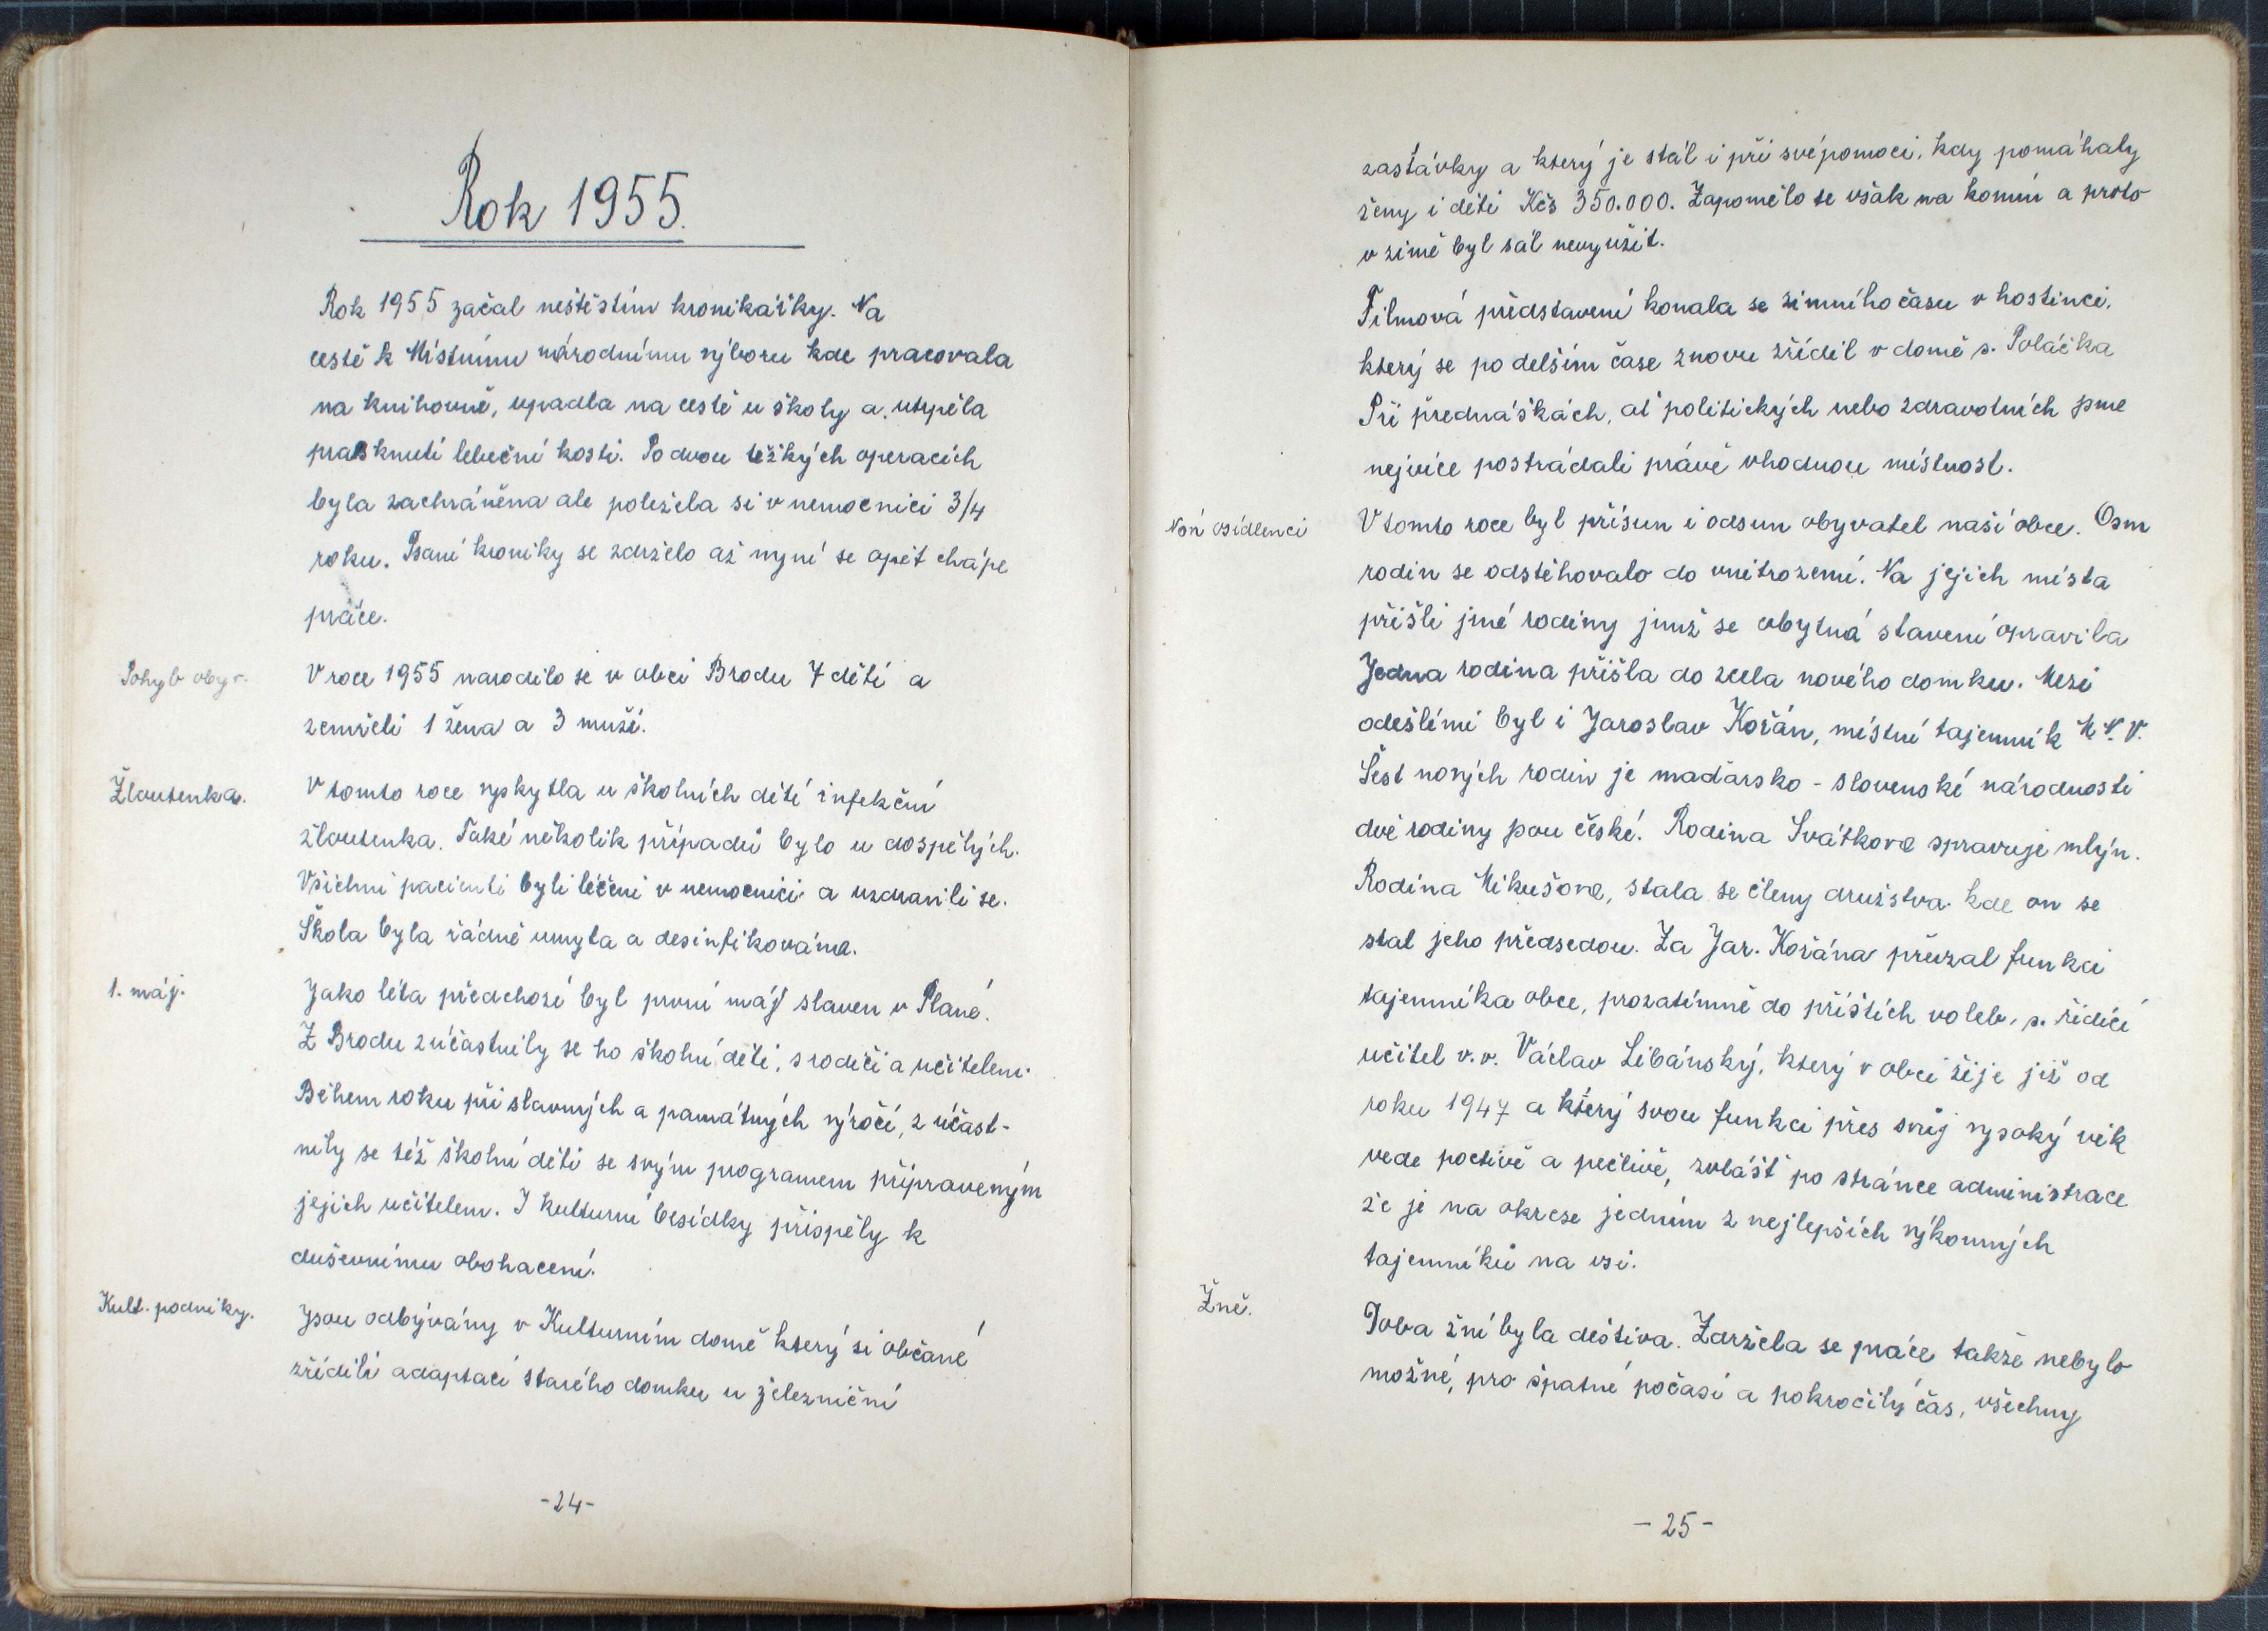 Rok 1955.
Rok 1955 začal neštěstím kronikářky. Na
cestě k Místnímu národnímu výboru kde pracovala
na knihovně, upadla na cestě u školy a utrpěla
prasknutí lebeční kosti. Po dvou težkých operacích
byla zachráněna ale poležela si v nemocnici 3/4
roku. Psaní kroniky se zdrželo až nyní se opět chápe
práce.
Pohyb obyv.
V roce 1955 narodilo se v obci Brodu 7 dětí a
zemřeli 1 žena a 3 muži.
Žloutenka.
V tomto roce vyskytla u školních dětí infekční
žloutenka. Také několik případů bylo u dospělých.
Všichni pacienti byli léčeni v nemocnici a uzdravili se.
Škola byla řádně umyta a desinfikována.
1. máj.
Jako léta předchozí byl první máj slaven v Plané.
Z Brodu zúčastnily se ho školní děti, s rodiči a učitelem.
Během roku při slavných a památných výročí, zúčast-
nily se též školní děti se svým programem připraveným
jejich učitelem. I kulturní besídky přispěly k
duševnímu obohacení.
Kult. podniky.
Jsou odbývány v Kulturním domě který si občané
zřídili adaptací starého domku u železniční
-24-
zastávky a který je stál i při svépomoci, kdy pomáhaly
ženy i děti Kčs 350.000. Zapomělo se však na komín a proto
v zimě byl sál nevyužit.
Filmová představení konala se zimního času v hostinci,
který se po delším čase znovu zřídil v domě s. Poláčka
Při přednáškách, ať politických nebo zdravotních jsme
nejvíce postrádali právě vhodnou místnost.
Noví osídlenci
V tomto roce byl přísun i odsun obyvatel naší obce. Osm
rodin se odstěhovalo do vnitrozemí. Na jejich místa
přišli jiné rodiny jimž se obytná stavení opravila
Jedna rodina přišla do zcela nového domku. Mezi
odešlými byl i Jaroslav Kořán, místní tajemník M.N.V.
Šest nových rodin je maďarsko - slovenské národnosti
dvě rodiny jsou české. Rodina Svátkova spravuje mlýn.
Rodina Mikušova, stala se členy družstva kde on se
stal jeho předsedou. Za Jar. Kořána převzal funkci
tajemníka obce, prozatímně do příštích voleb, s. řídící
učitel v.v. Václav Libánský, který v obci žije již od
roku 1947 a který svou funkci přes svůj vysoký věk
vede poctivě a pečlivě, zvlášť po stránce administrace
že je na okrese jedním z nejlepších výkonných
tajemníků na vsi.
Žně.
Doba žní byla deštiva. Zdržela se práce takže nebylo
možné, pro špatné počasí a pokročilý čas, všechny
-25-